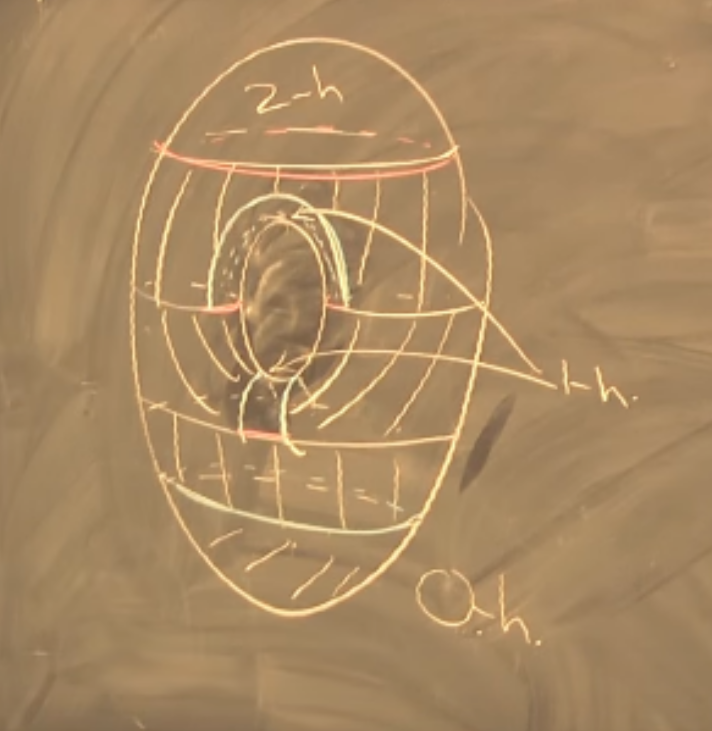 2-h
1-h.
0-h.